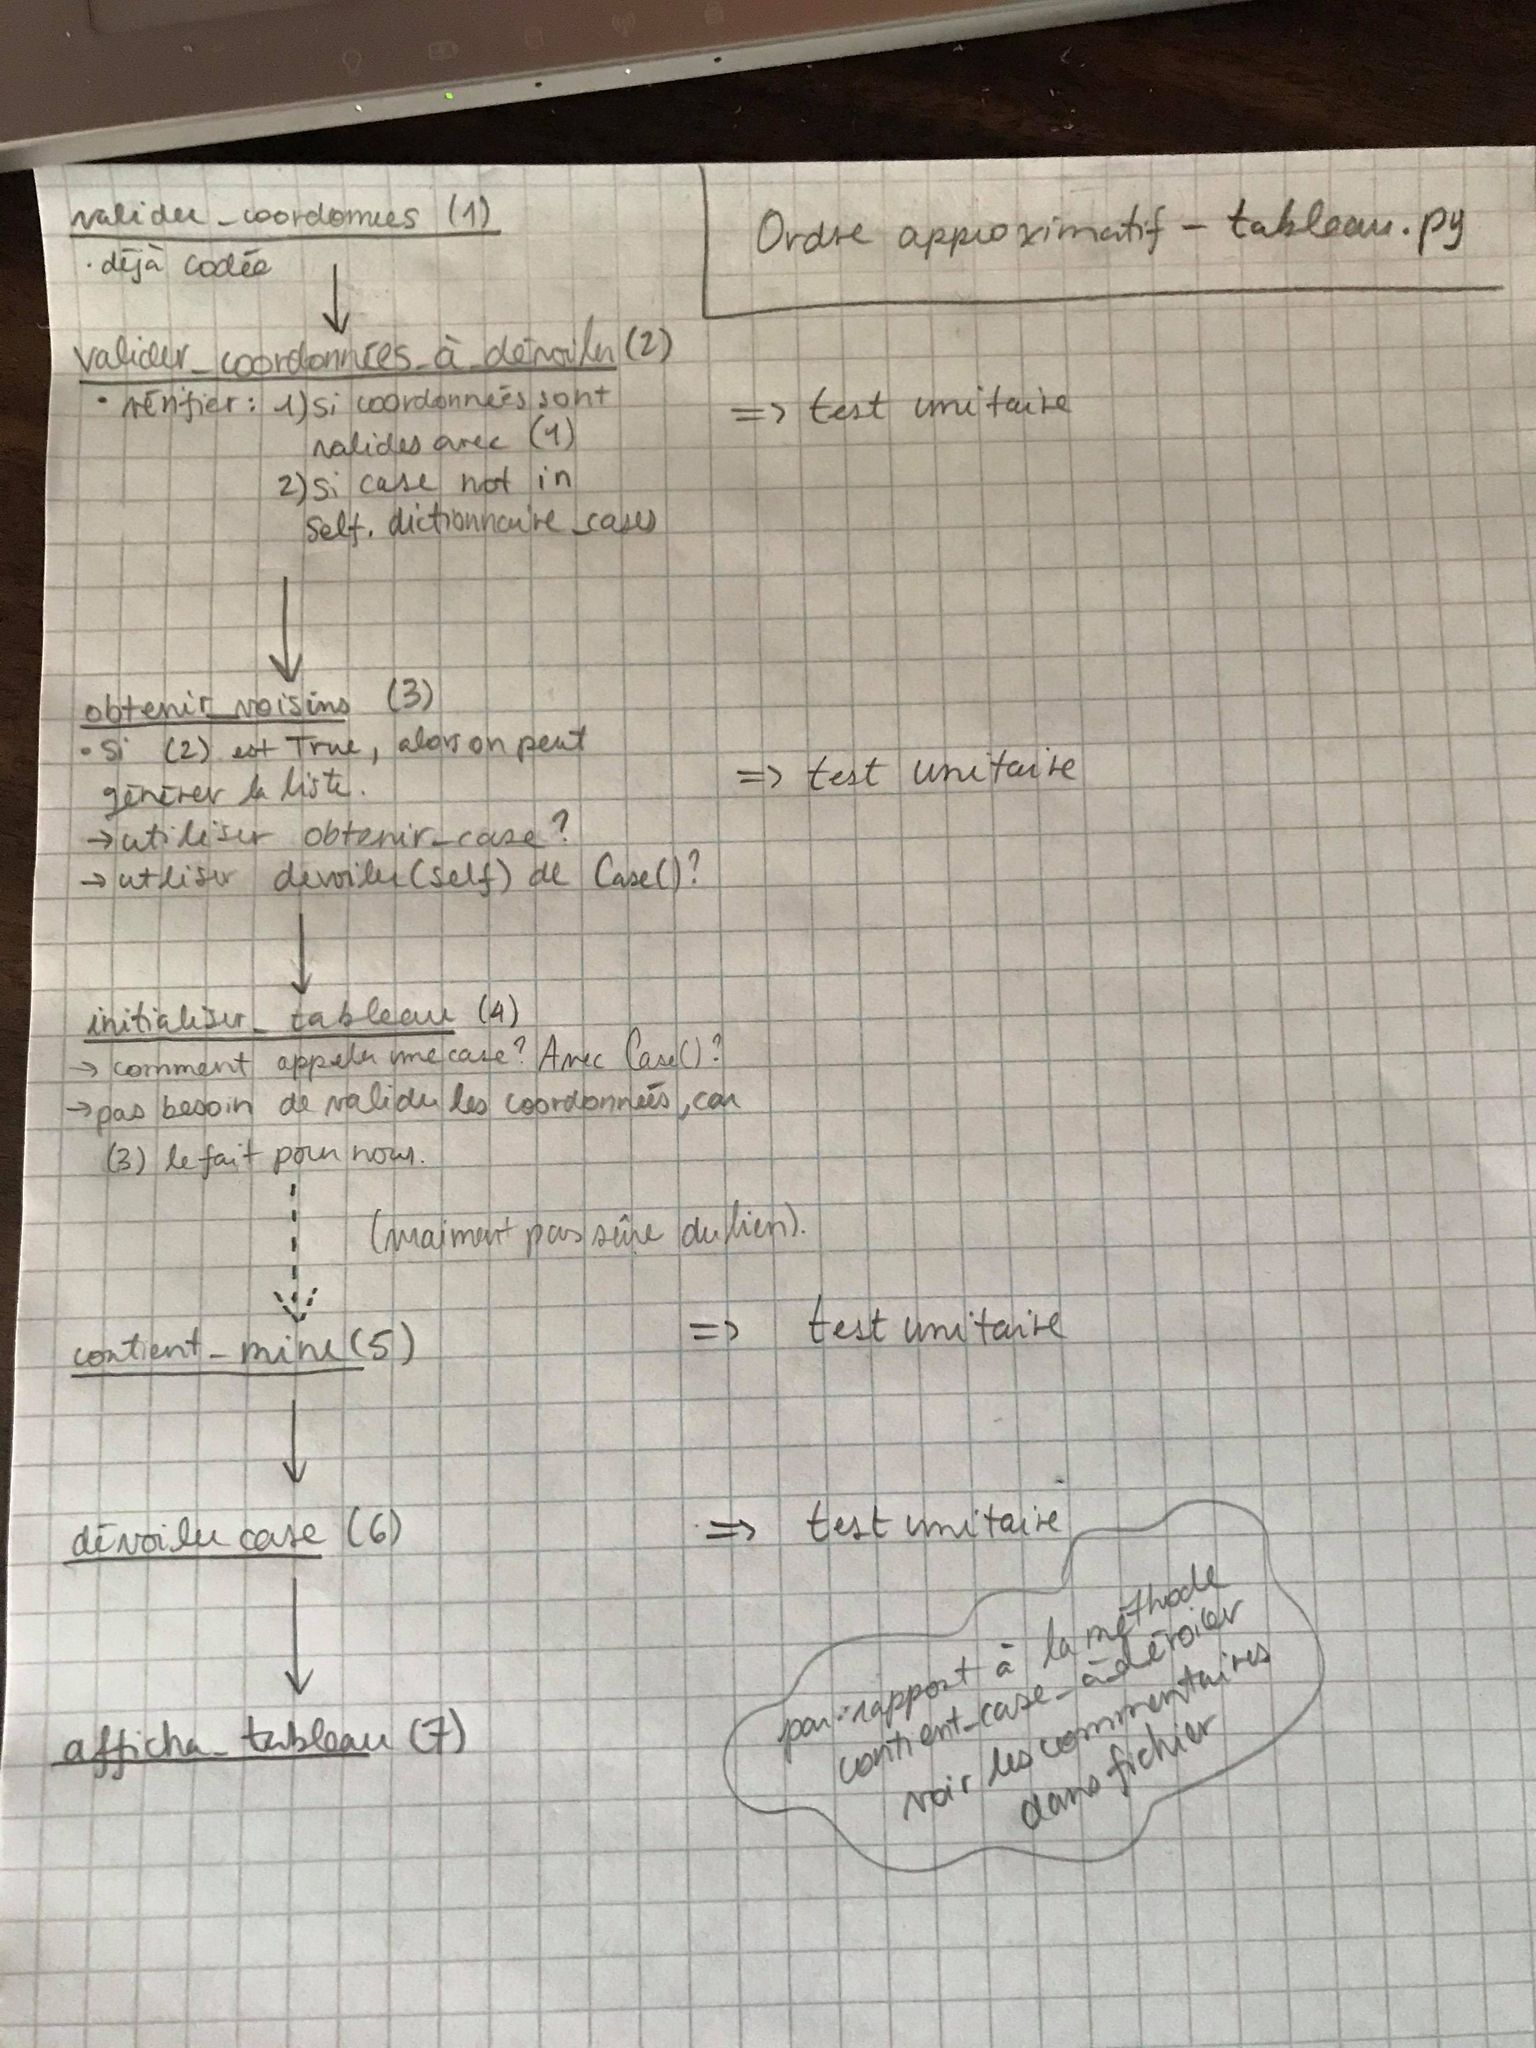 valider_coordonnées (1)
Ordre approximatif - tableau.py
· déjà codée
valider_coordonnées_à_dévoiler (2)
· vérifier: 1) si coordonnées sont
valides avec (1)
=> test unitaire
2) si case not in
self.dictionnaire_cases
obtenir_voisins (3)
· Si (2) est True, alors on peut
générer la liste.
=> test unitaire
→ utiliser obtenir_case?
→ utliser devoiler(self) de Case()?
initialiser_tableau (4)
→ comment appeler une case? Avec Case()?
→ pas besoin de valider les coordonnées, car
(3) le fait pour nous.
(vraiment pas sûre du lien).
contient_mine (5)
=> test unitaire
dévoiler case (6)
=> test unitaire
par rapport à la méthode
contient_case_à_dévoiler
voir les commentaires
dans fichier
afficher_tableau (7)